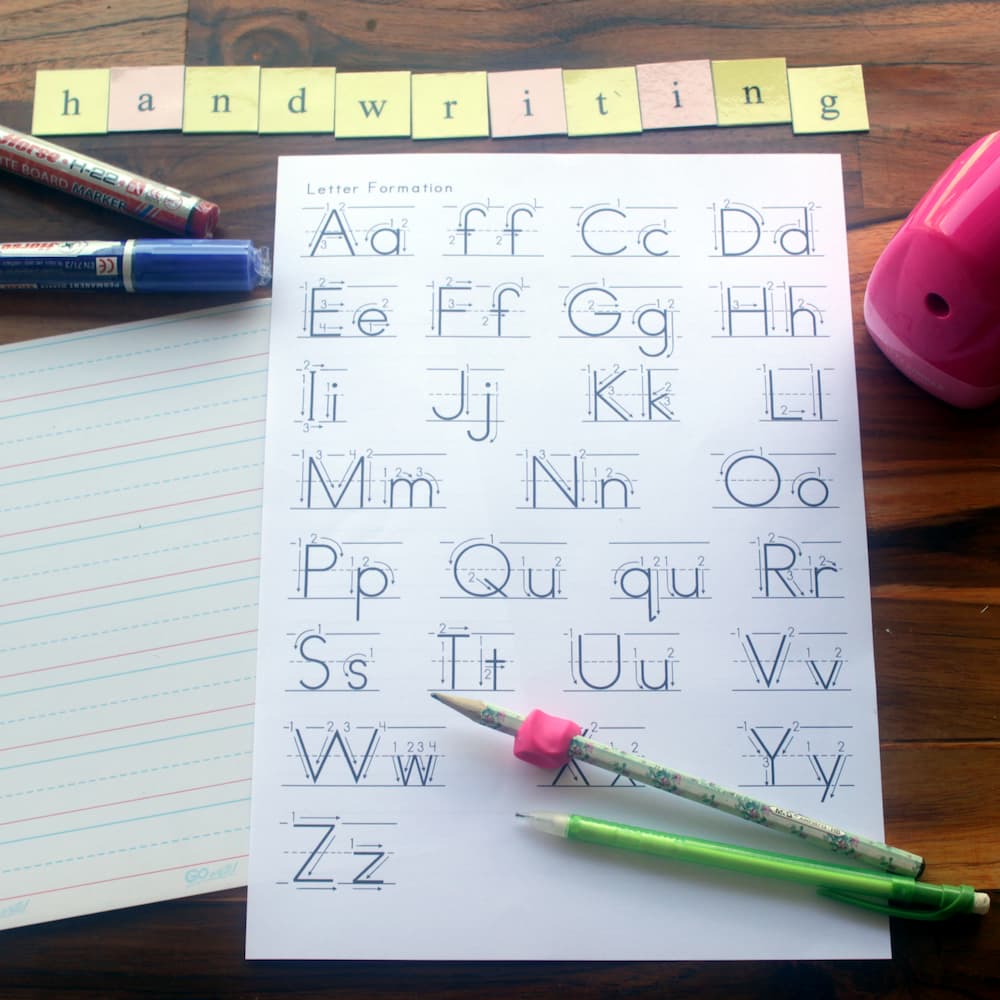 handwriting
Letter Formation
Horse H-22
TE BOARD MARKER
Horse
EN71/3 CE
PERMANENT
Aa ff Cc Dd
Ee Ff Gg Hh
Ii Jj Kk Ll
Mm Nn Oo
Pp Qu qu Rr
Ss Tt Uu Vv
Ww Xx Yy
Zz
GO